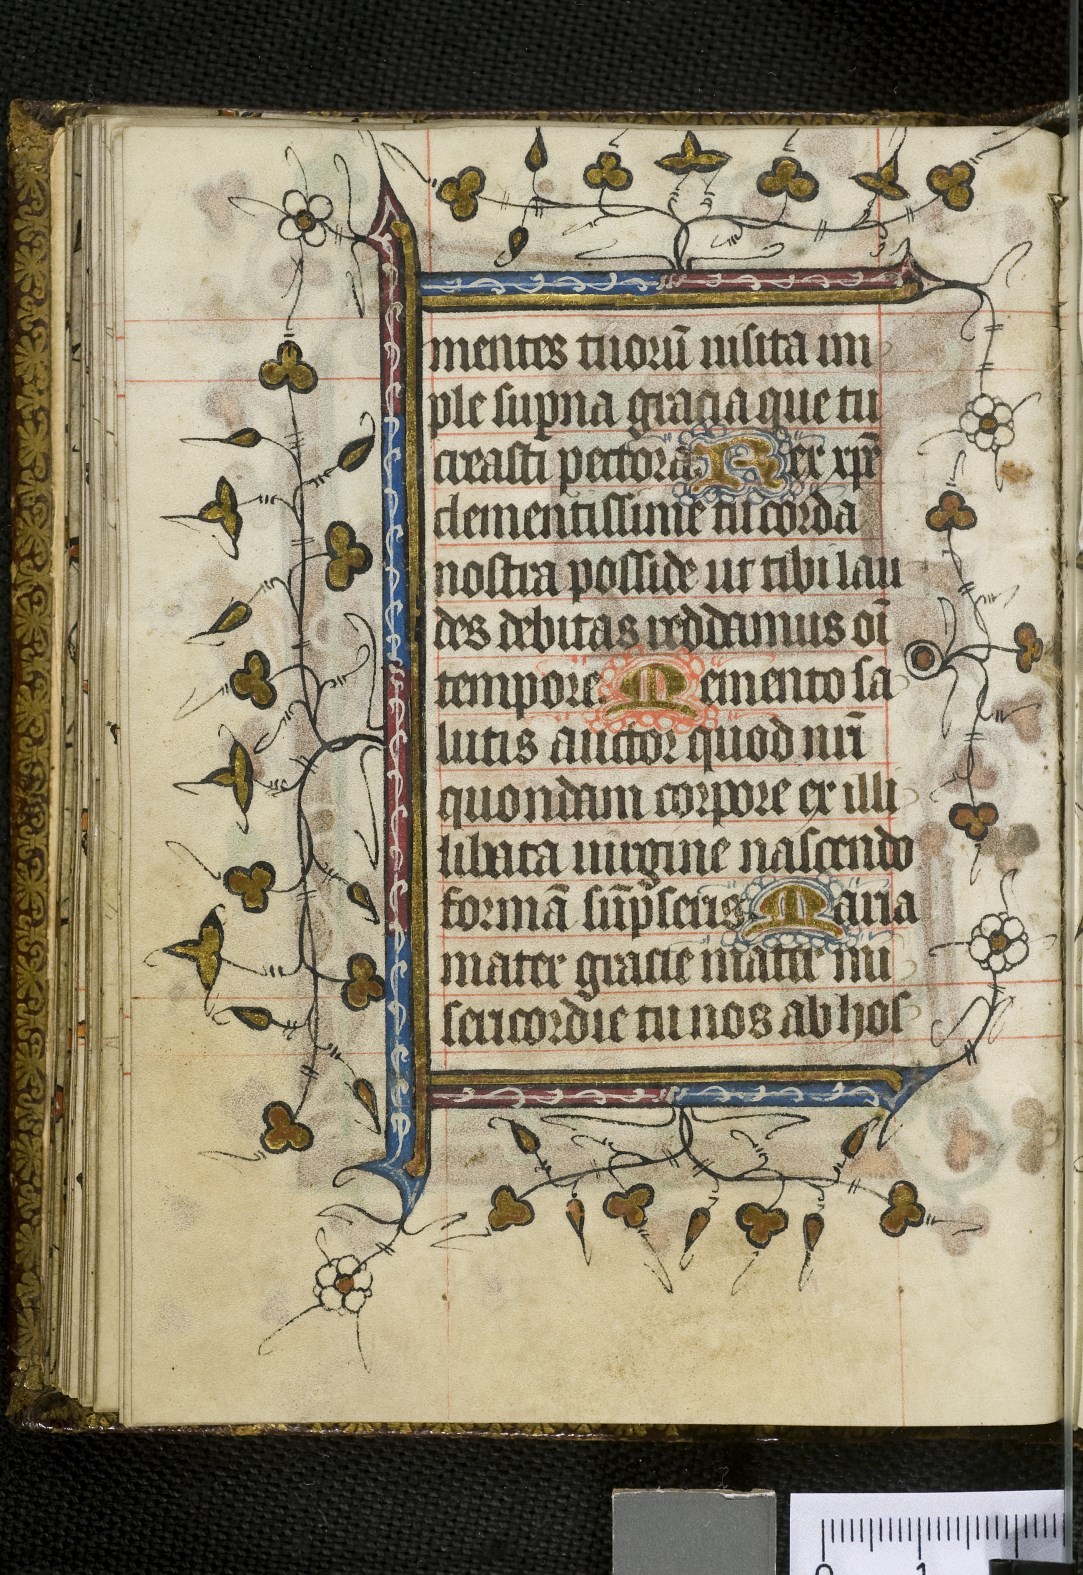 mentes tuorū uisita im
ple sup̱na gracia que tu
creasti pectora. Rex xp̄e
clementissime tu corda
nostra posside ut tibi lau
des debitas reddamus oī
tempore. Memento sa
lutis auctor quod nr̄i
quondam corpore ex illi
libata uirgine nascendo
formā sūpseris Maria
mater gracie mater mi
sericordie tu nos ab hos
0 1